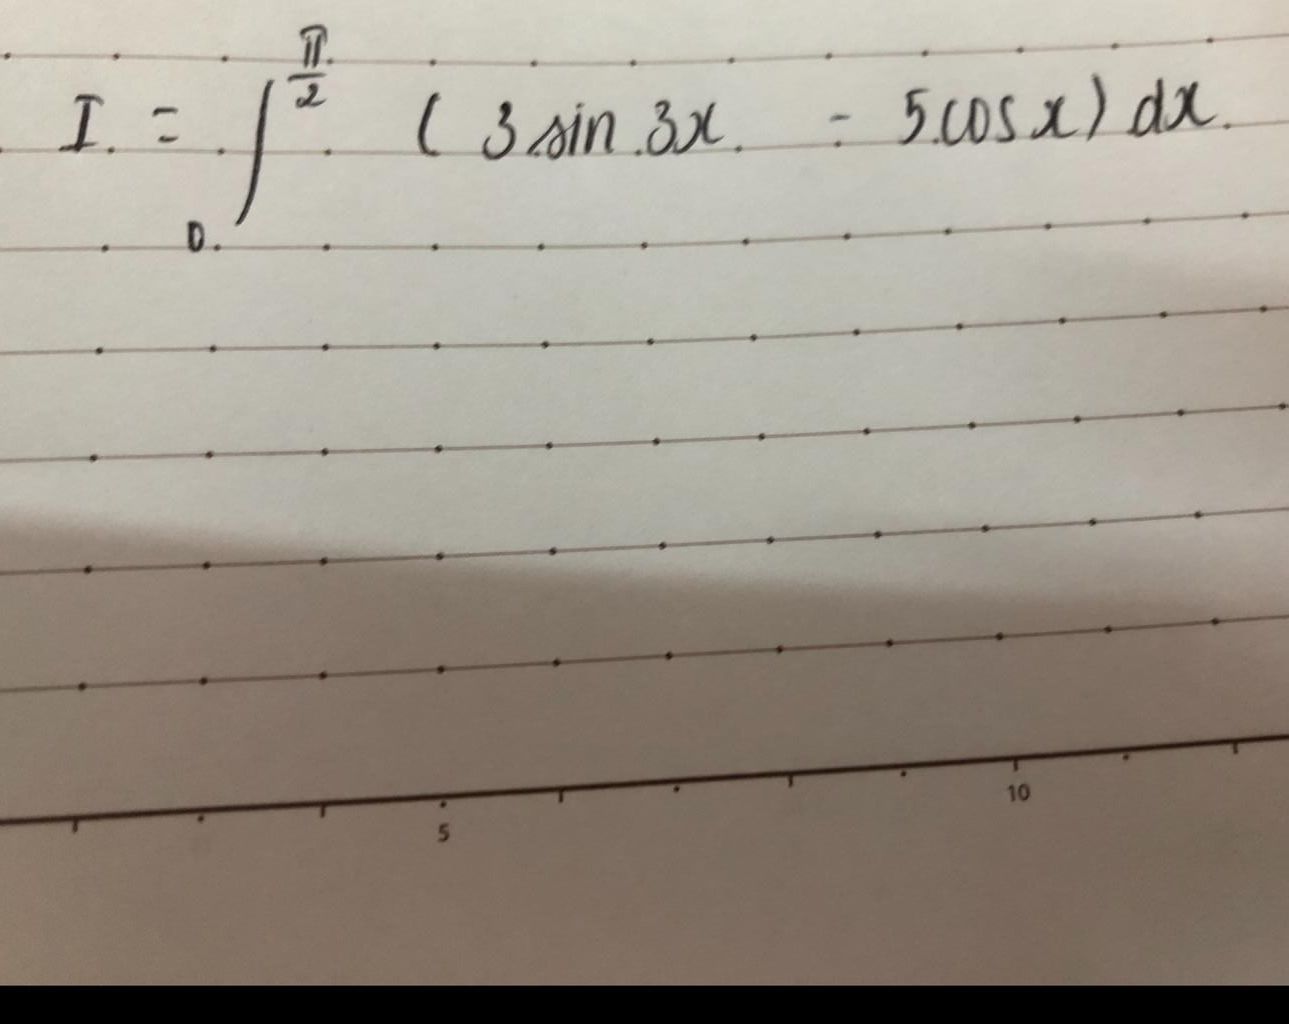 I = ∫₀^(π/2) (3 sin 3x - 5 cos x) dx
5 10